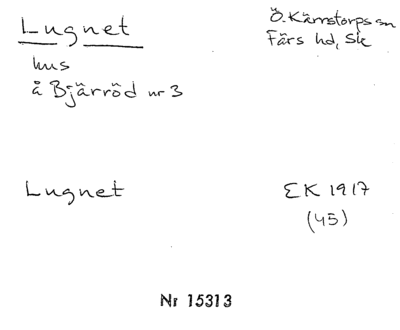 Lugnet
Ö. Kärrstorps sn
Färs hd, Sk
hus
å Bjärröd nr 3
Lugnet
EK 1917
(45)
Nr 15313